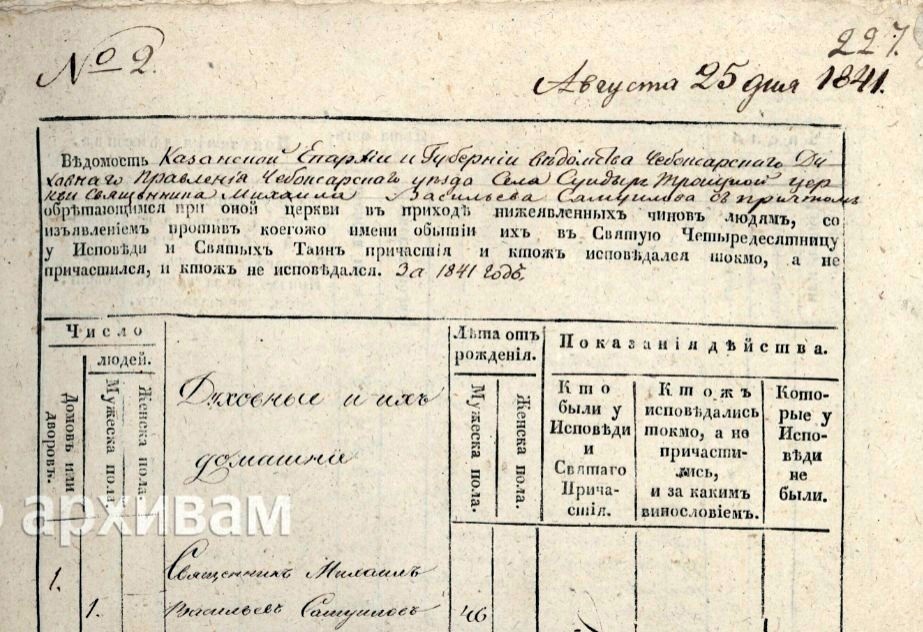 227.
№ 2.
Августа 25 дня 1841.
Вѣдомость Казанской Епархіи и Губерніи вѣдомства Чебоксарскаго Ду-
ховнаго Правленія Чебоксарскаго уѣзда Села Сундырь Троицкой цер-
кви Священника Михаила Васильева Самуилова съ причтомъ
обрѣтающимся при оной церкви въ приходѣ нижеявленныхъ чиновъ людямъ, со
изъявленіемъ противъ коегожо имени обытіи ихъ въ Святую Четыредесятницу
у Исповѣди и Святыхъ Таинъ причастія и ктожъ исповѣдался токмо, а не
причастился, и ктожъ не исповѣдался. За 1841 годъ.
Число
людей.
Домовъ или дворовъ.
Мужеска пола.
Женска пола.
Духовные и ихъ
домашніе
Лѣта отъ
рожденія.
Мужеска пола.
Женска пола.
Показанія дѣйства.
Кто
были у
Исповѣди
и
Святаго
Прича-
стія.
Ктожъ
исповѣдались
токмо, а не
причасти-
лись,
и за какимъ
винословіемъ.
Кото-
рые у
Испо-
вѣди
не
были.
архивам
1.
Священникъ Михаилъ
1. Васильевъ Самуиловъ 46